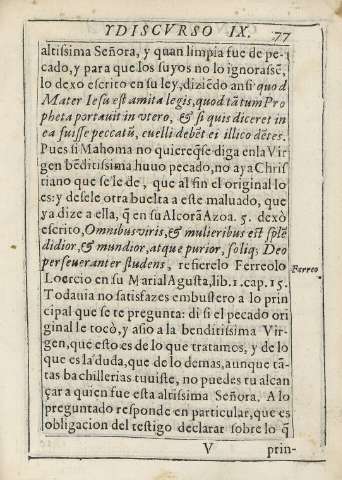 YDISCVRSO IX. 77
altissima Señora, y quan limpia fue de pe-
cado, y para que los suyos no lo ignorassē,
lo dexo escrito en su ley, diziēdo ansi quod
Mater Iesu est amita legis, quod tātum Pro
pheta portauit in vtero, & si quis diceret in
ea fuisse peccatū, euelli debēt ei illico dētes.
Pues si Mahoma no quiere q̄ se diga en la Vir
gen bēditissima huuo pecado, no ay a Chris
tiano que se le dè, que al fin el original lo
es: y desele otra buelta a este maluado, que
ya dize a ella, q̄ en su Alcorā Azoa. 5. dexò
escrito, Omnibus viris, & mulieribus est splē
didior, & mundior, atque purior, soliq; Deo
perseueranter studens, refierelo Ferreolo
Ferreo
Loercio en su Marial Agusta, lib. 1. cap. 15.
Todauia no satisfazes embustero a lo prin
cipal que se te pregunta: di si el pecado ori
ginal le tocò, y asio a la benditissima Vir-
gen, que esto es de lo que tratamos, y de lo
que es la duda, que de lo demas, aunque tā-
tas bachillerias tuuiste, no puedes tu alcan
çar a quien fue esta altissima Señora. A lo
preguntado responde en particular, que es
obligacion del testigo declarar sobre lo q̄
V prin-